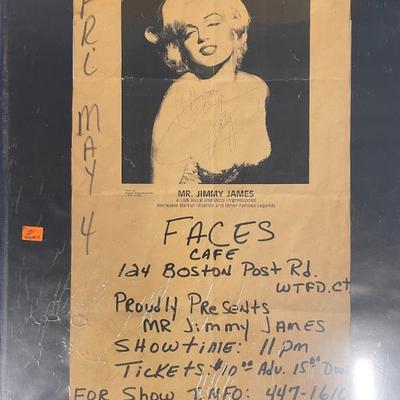 FRI MAY 4
MR. JIMMY JAMES
A LIVE Visual and Voice Impressionist
Recreates Marilyn Monroe and Other Famous Legends
FACES
CAFE
124 Boston Post Rd.
WTFD.CT
Proudly Presents
MR Jimmy JAMES
SHOWTIME: 11 pm
TICKETS: $10.00 Adv. 15.00 Door
FOR SHOW INFO: 447-1610